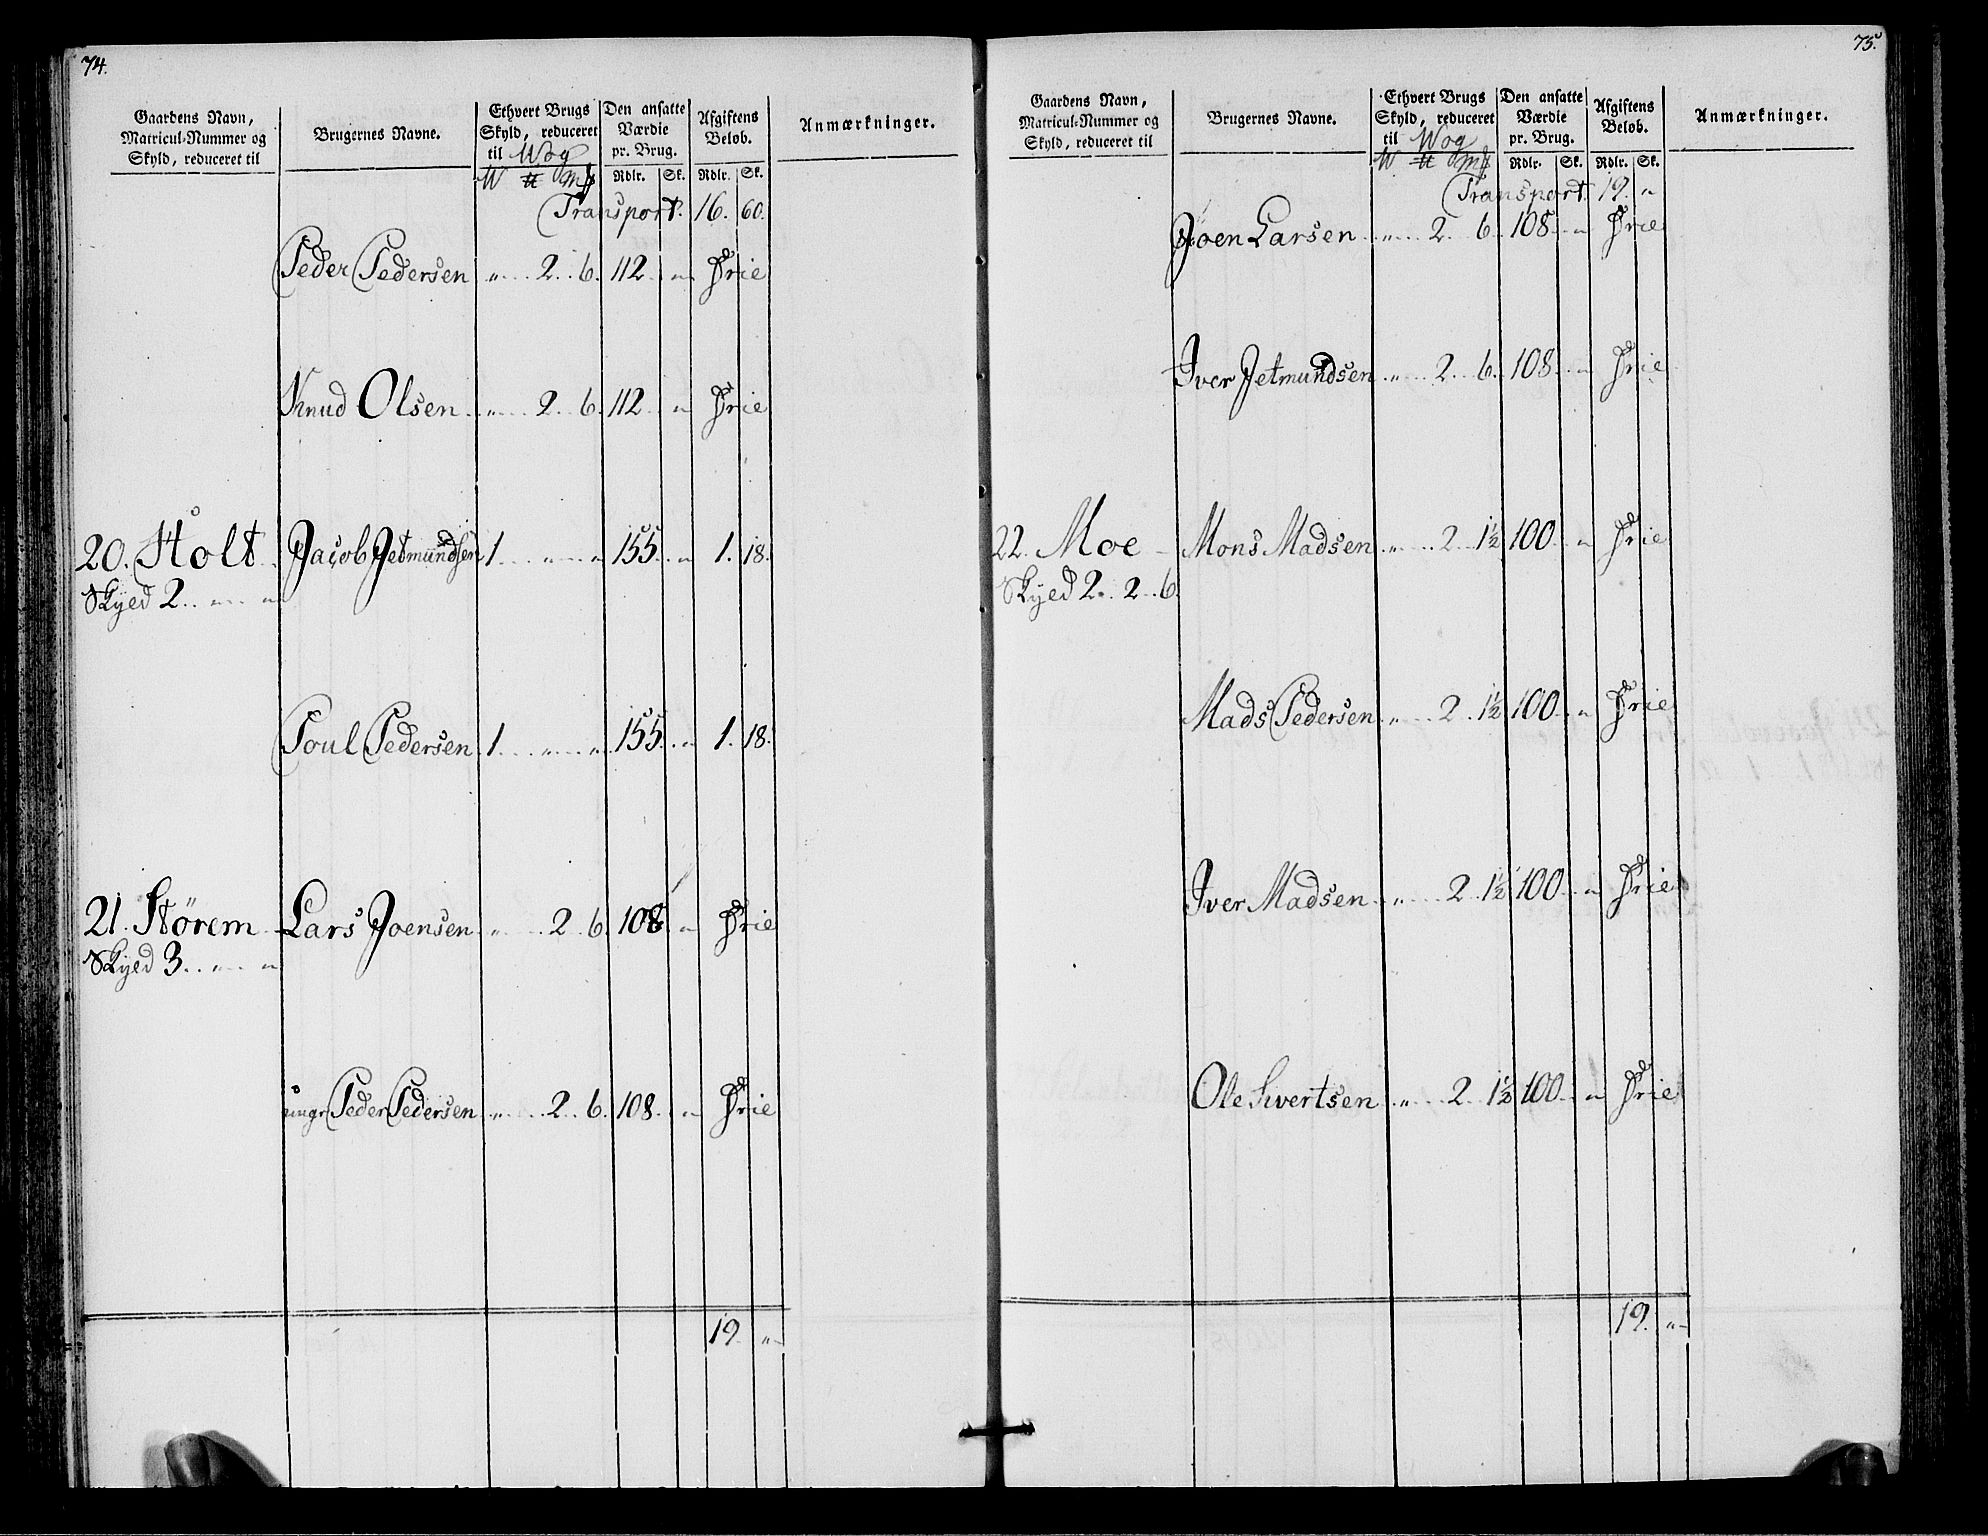 74.
Gaardens Navn, Matricul-Nummer og Skyld, reduceret til | Brugernes Navne. | Ethvert Brugs Skyld, reduceret til Wog W ℔ mk | Den ansatte Værdie pr. Brug. Rdlr. Sk. | Afgiftens Beløb. Rdlr. Sk. | Anmærkninger.
Transport. 16. 60.
Peder Pedersen „ 2. 6. 112 „ Frie
Knud Olsen „ 2. 6. 112 „ Frie
20. Holt Jacob Jetmundsen 1 „ „ 155 „ 1. 18.
Skyld 2. „ „
Poul Pedersen 1 „ „ 155 „ 1. 18.
21. Störem Lars Joensen „ 2 6. 108 „ Frie
Skyld 3. „ „
ungr Peder Pedersen „ 2. 6. 108 „ Frie
19. „
75.
Gaardens Navn, Matricul-Nummer og Skyld, reduceret til | Brugernes Navne. | Ethvert Brugs Skyld, reduceret til Wog W ℔ mk | Den ansatte Værdie pr. Brug. Rdlr. Sk. | Afgiftens Beløb. Rdlr. Sk. | Anmærkninger.
Transport. 19. „
Joen Larsen „ 2 6. 108 „ Frie
Iver Jetmundsen „ 2. 6. 108 „ Frie
22. Moe Mons Madsen „ 2 1½ 100 „ Frie
Skyld 2. 2. 6.
Mads Pedersen „ 2 1½ 100 „ Frie
Iver Madsen „ 2 1½ 100 „ Frie
Ole Sivertsen „ 2 1½ 100 „ Frie
19. „